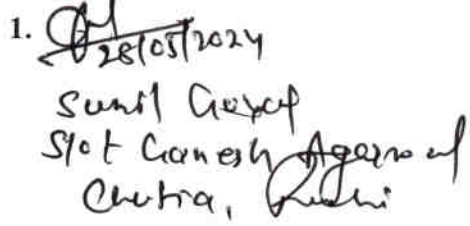 1. 28/05/2024
Sunil Goyal
S/o t Ganesh Agarwal
Chutia, Ranchi